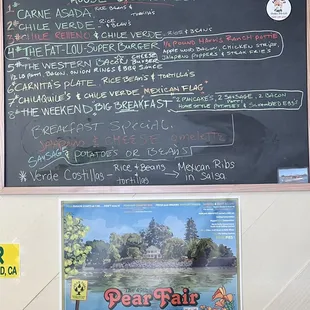 1# CARNE ASADA RICE BEANS & TORTILLA'S
2# CHILE VERDE RICE & BEANS
3# CHILE RELLENO & CHILE VERDE - RICE & BEANS
4# THE FAT-LOU-SUPER BURGER 1/2 POUND HARRIS RANCH PATTIE
APPLE WOOD BACON, CHICKEN STRIPS,
JALAPENO POPPERS & STEAK CUT'S
5# THE WESTERN BACON BURGER
1/2 LB PATTY, BACON, ONION RINGS & BBQ SAUCE CHEESE
6# CARNITA'S PLATE RICE BEANS & TORTILLA'S
7# CHILAQUILE'S & CHILE VERDE MEXICAN FLAG
8# THE WEEKEND BIG BREAKFAST 2 PANCAKES, 2 SAUSAGE, 2 BACON
HOMESTYLE POTATOES & SCRAMBLED EGGS
BREAKFAST SPECIAL
CHEESE omelette
SAUSAGE & POTATOES OR BEANS
* Verde Costillas - Rice & Beans tortillas → Mexican Ribs in Salsa
D, CA
Pear Fair